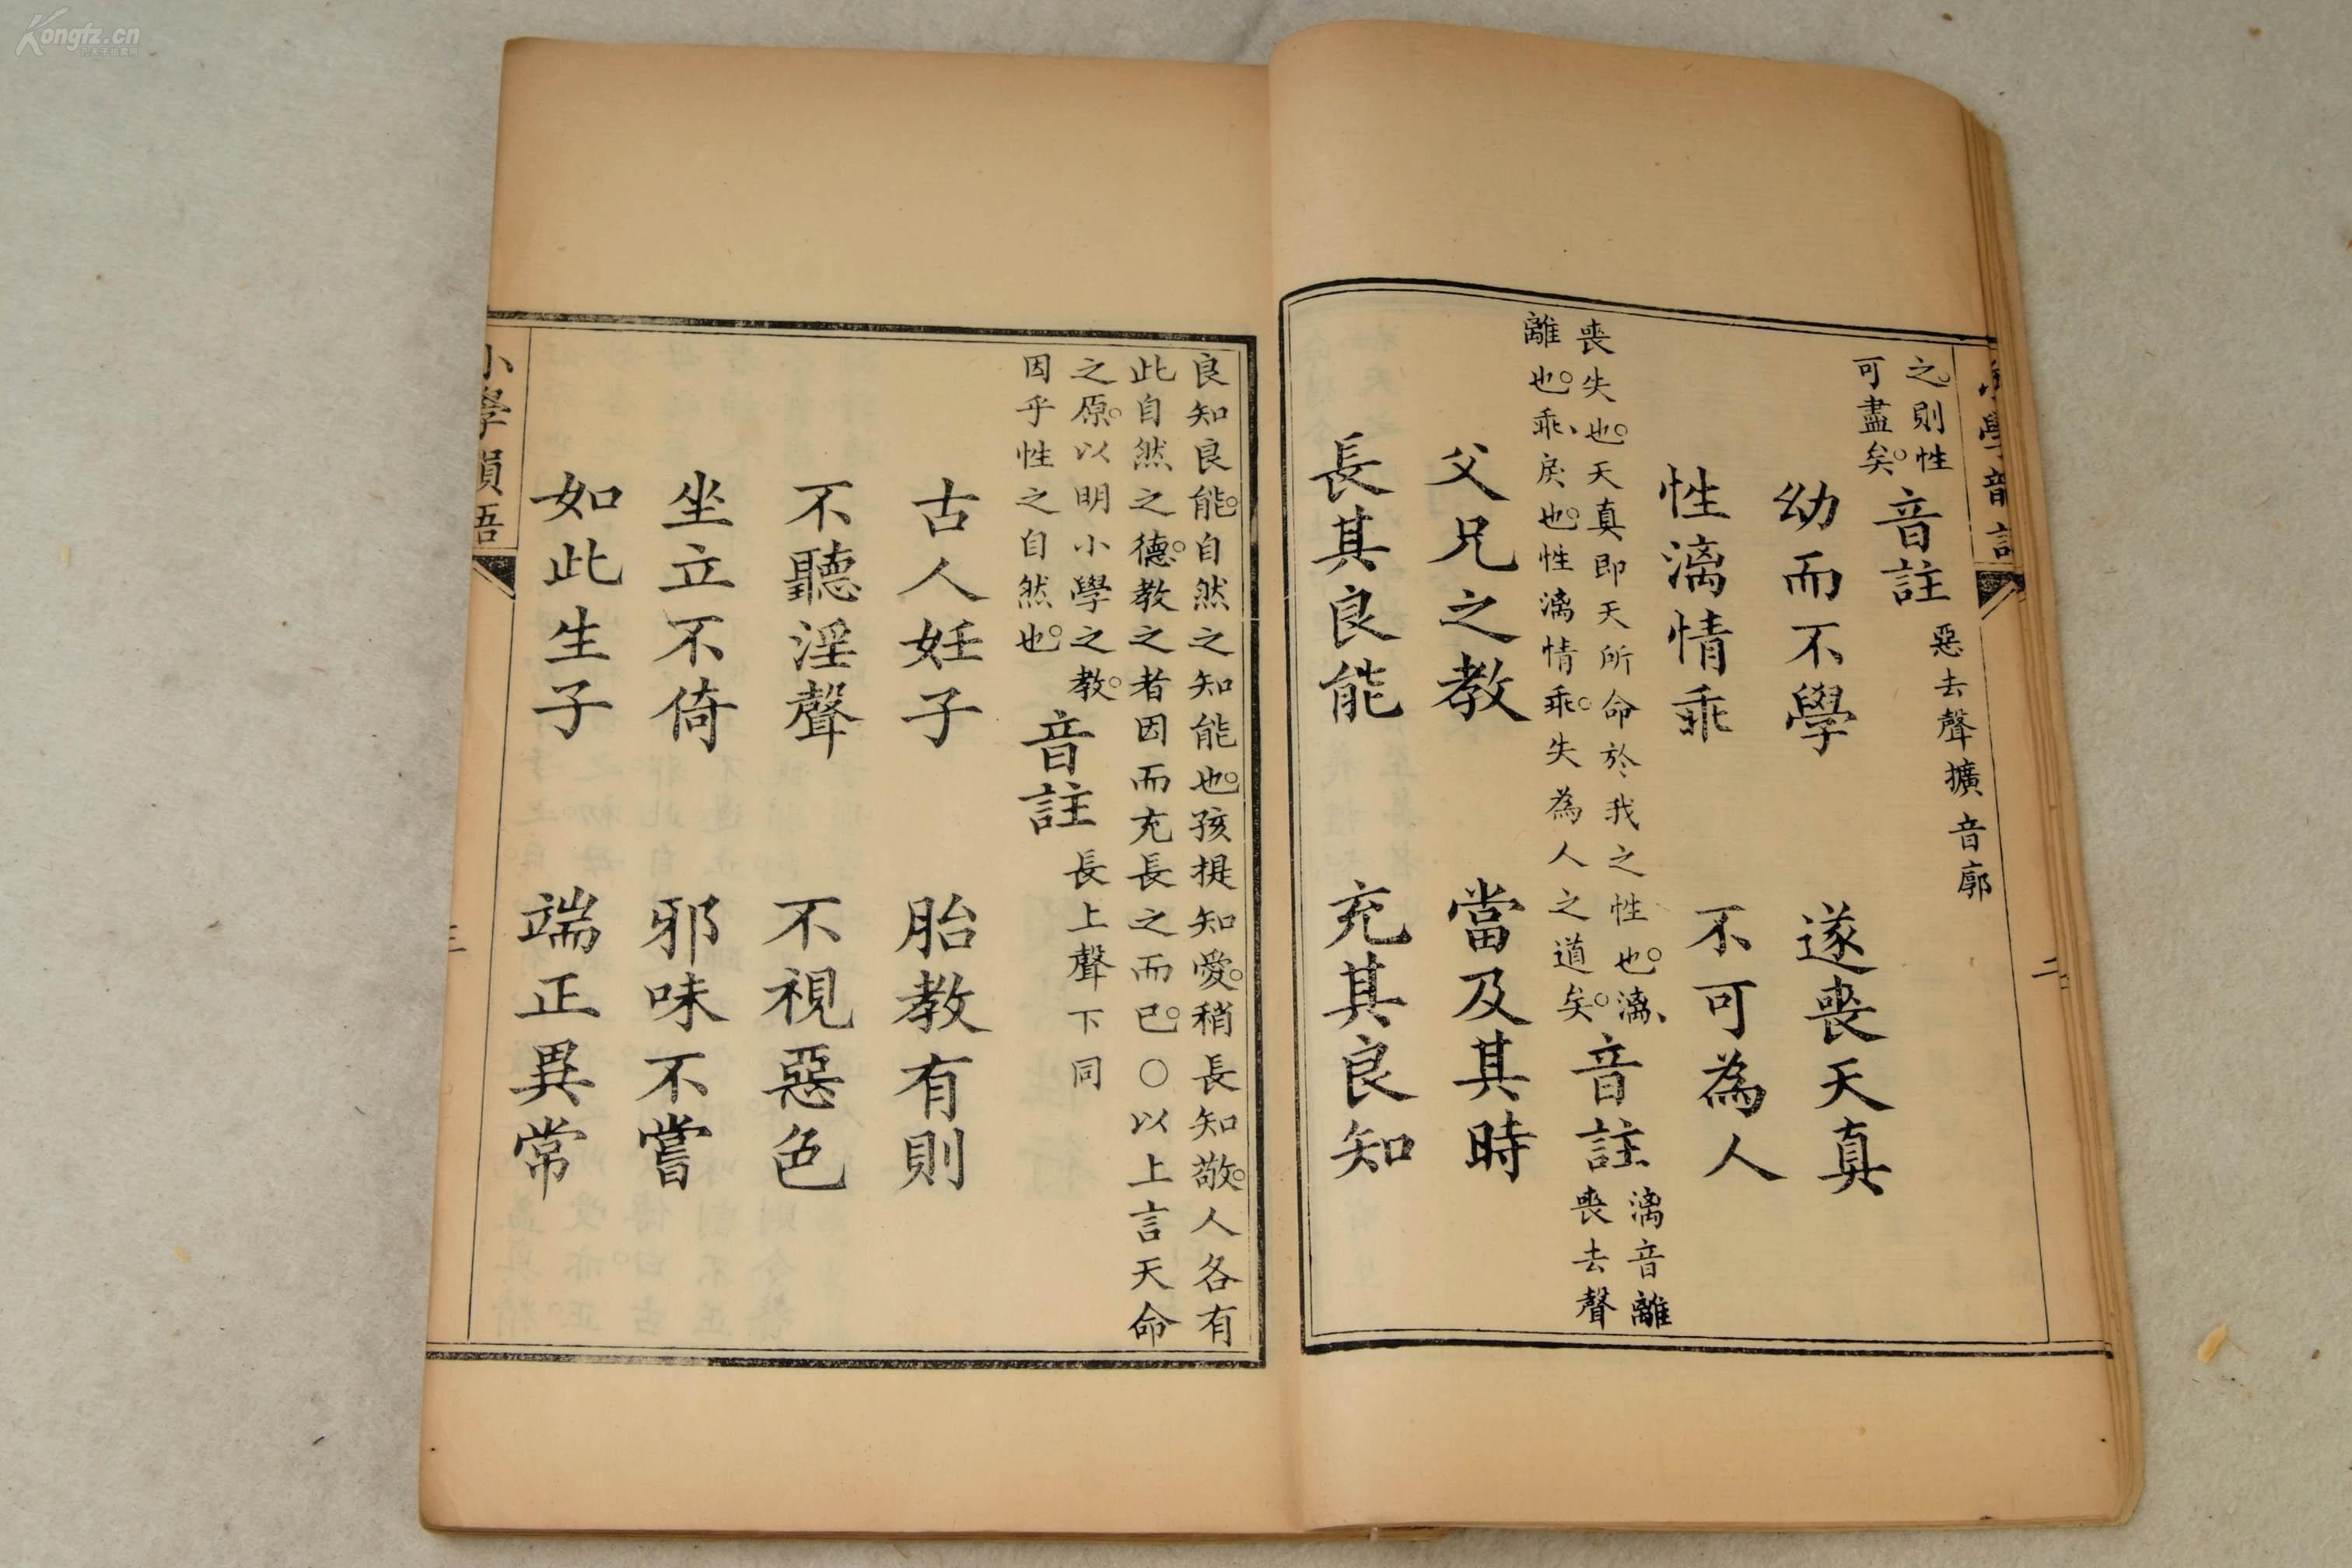 Kongfz.cn
小學韻語
二
之。則性
可盡矣。
音註
惡去聲擴音廓
幼而不學 遂喪天真
性漓情乖 不可為人
喪失也。天真即天所命於我之性也。漓、
離也。乖、戾也。性漓情乖。失為人之道矣。
音註
漓音離
喪去聲
父兄之教 當及其時
長其良能 充其良知
良知良能。自然之知能也。孩提知愛。稍長知敬。人各有
此自然之德。教之者因而充長之而已。○以上言天命
之原。以明小學之教。
因乎性之自然也。
音註
長上聲下同
古人妊子 胎教有則
不聽淫聲 不視惡色
坐立不倚 邪味不嘗
如此生子 端正異常
小學韻語
三